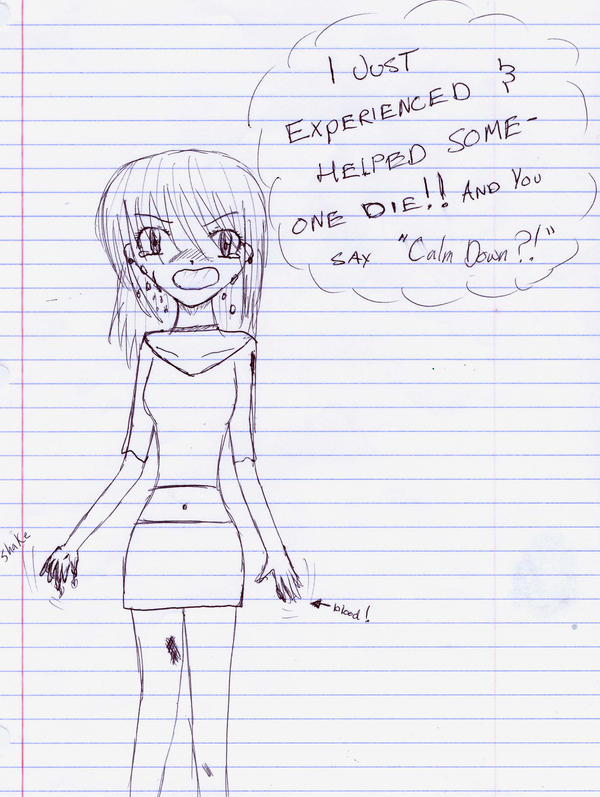 I JUST
EXPERIENCED &
HELPED SOME-
ONE DIE!! AND YOU
SAY "Calm Down?!"
shake
blood!